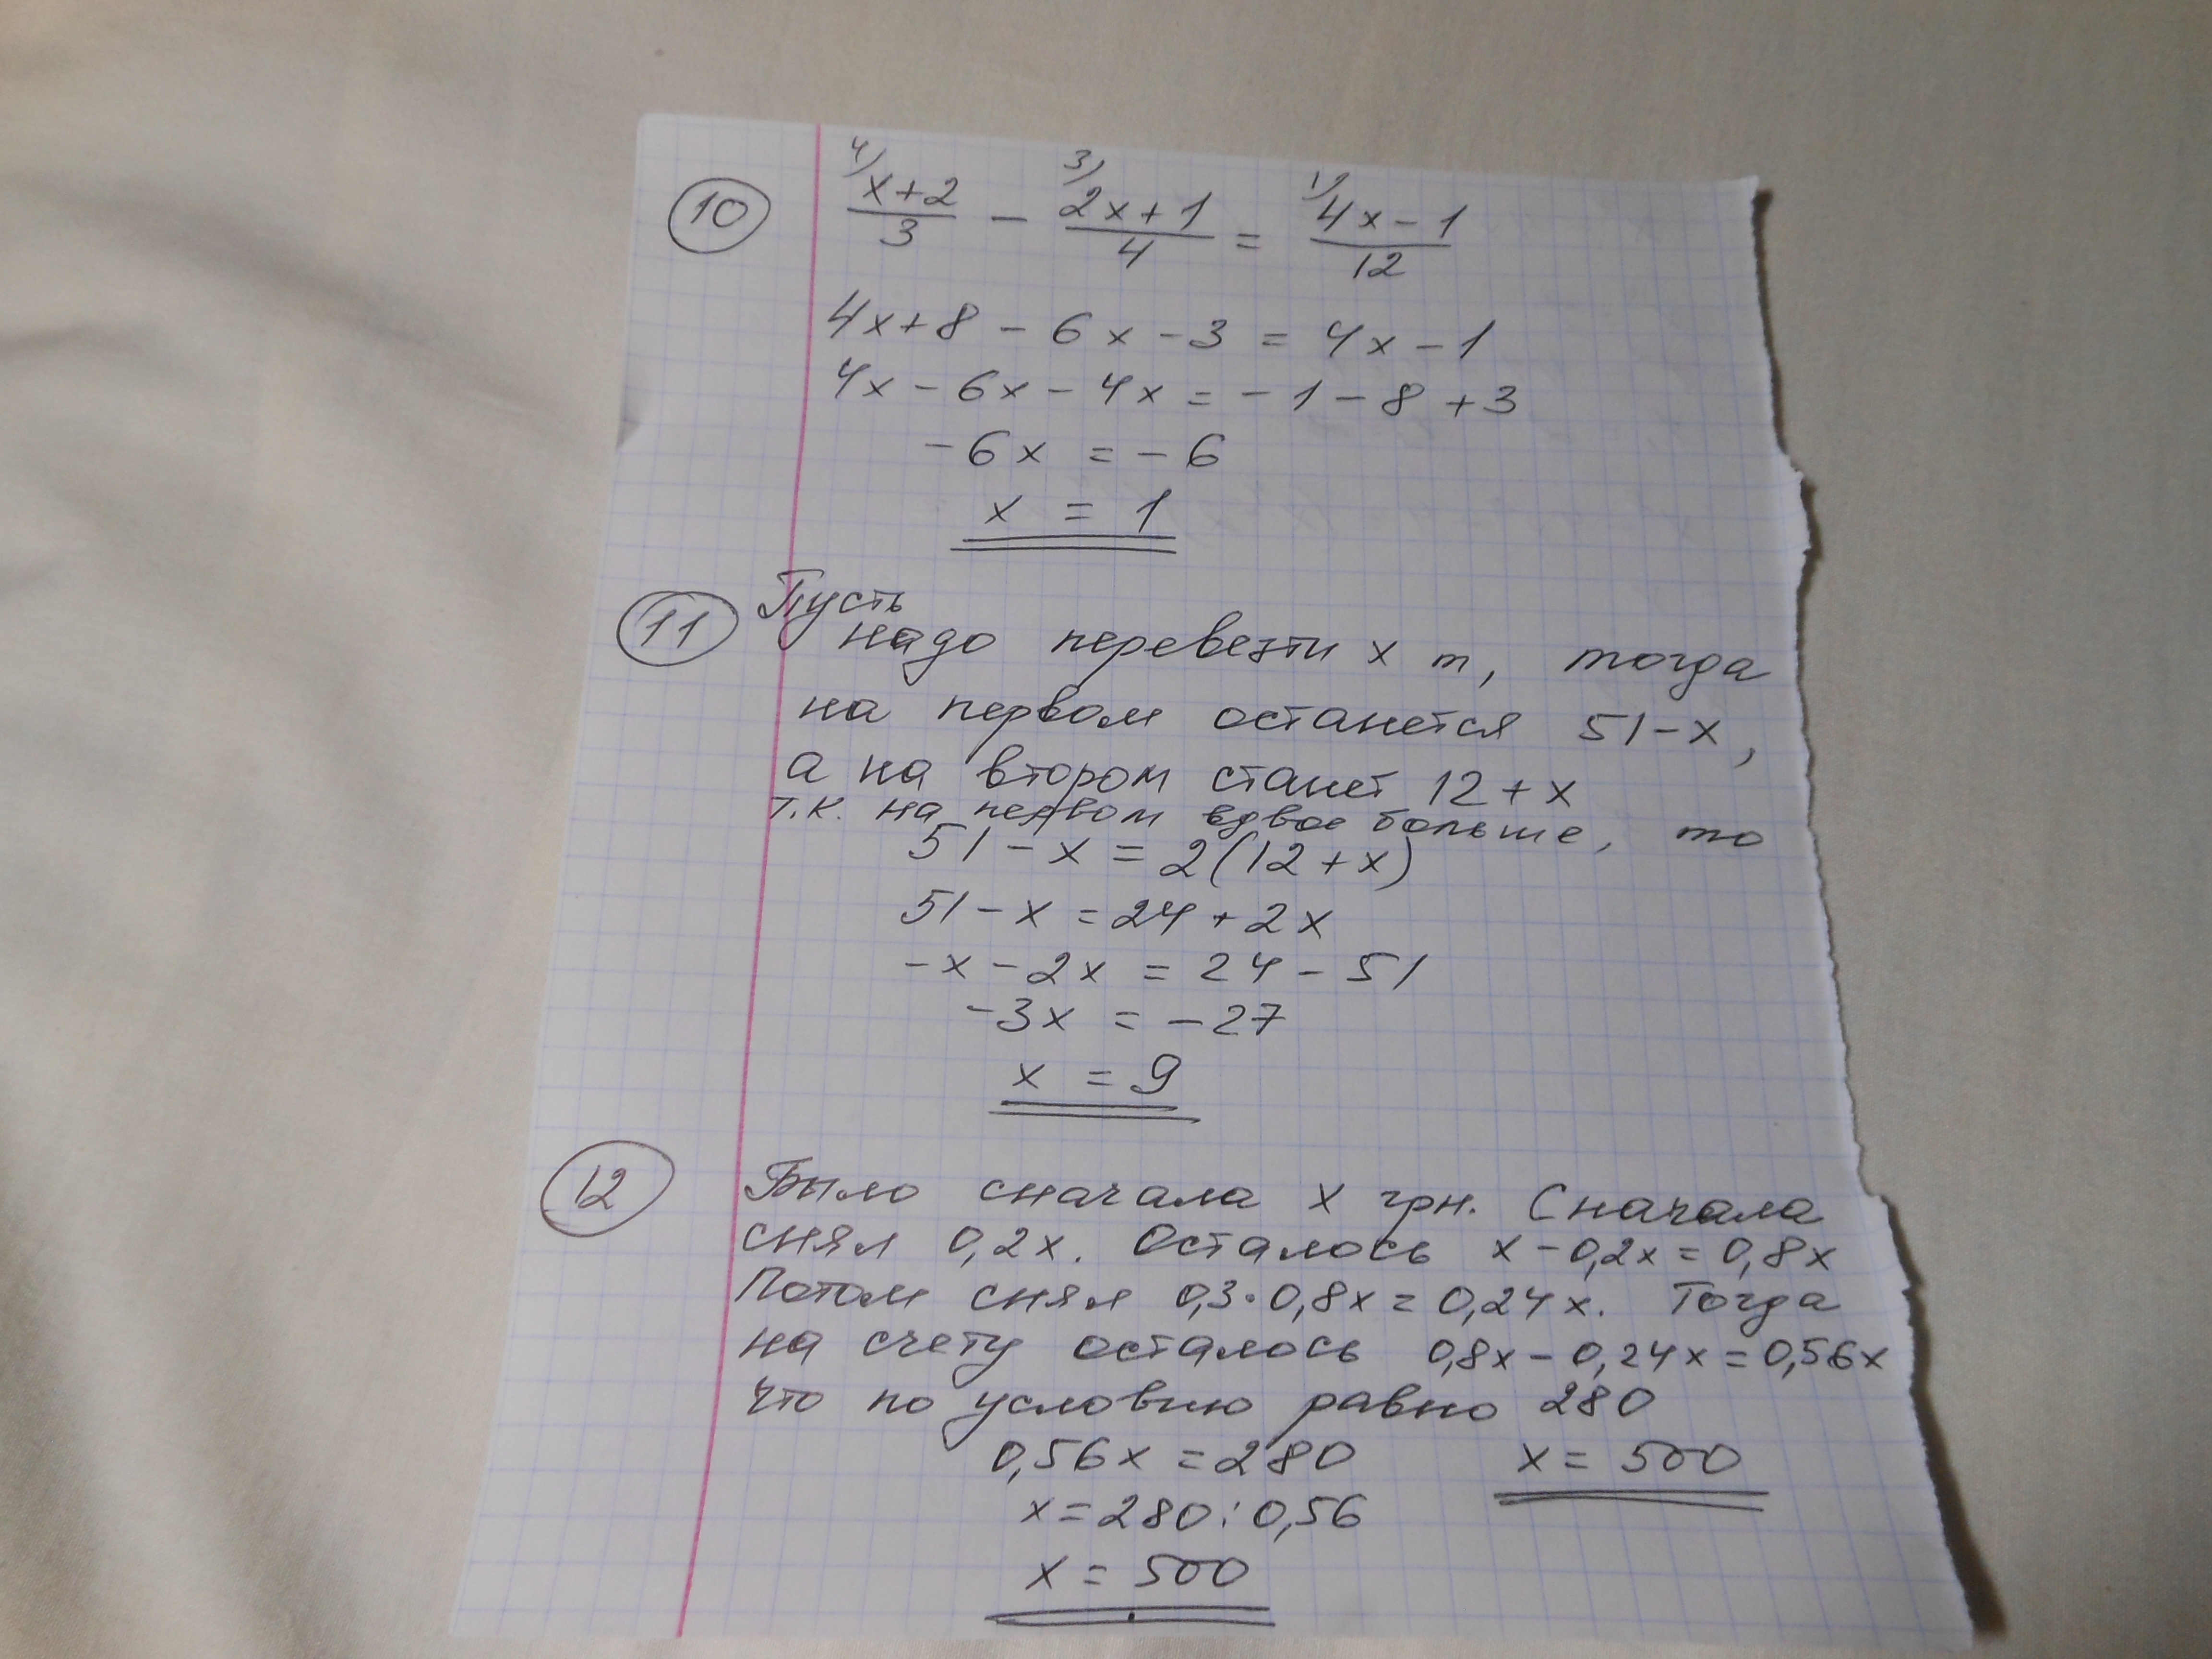 10
4) 3) 1)
x+2/3 - 2x+1/4 = 4x-1/12
4x+8-6x-3=4x-1
4x-6x-4x=-1-8+3
-6x=-6
x=1
11 Пусть
надо перевезти x т, тогда
на первом останется 51-x,
а на втором станет 12+x
т.к. на первом вдвое больше, то
51-x=2(12+x)
51-x=24+2x
-x-2x=24-51
-3x=-27
x=9
12 Было сначала x грн. Сначала
снял 0,2x. Осталось x-0,2x=0,8x
Потом снял 0,3·0,8x=0,24x. Тогда
на счету осталось 0,8x-0,24x=0,56x
что по условию равно 280
0,56x=280 x=500
x=280:0,56
x=500